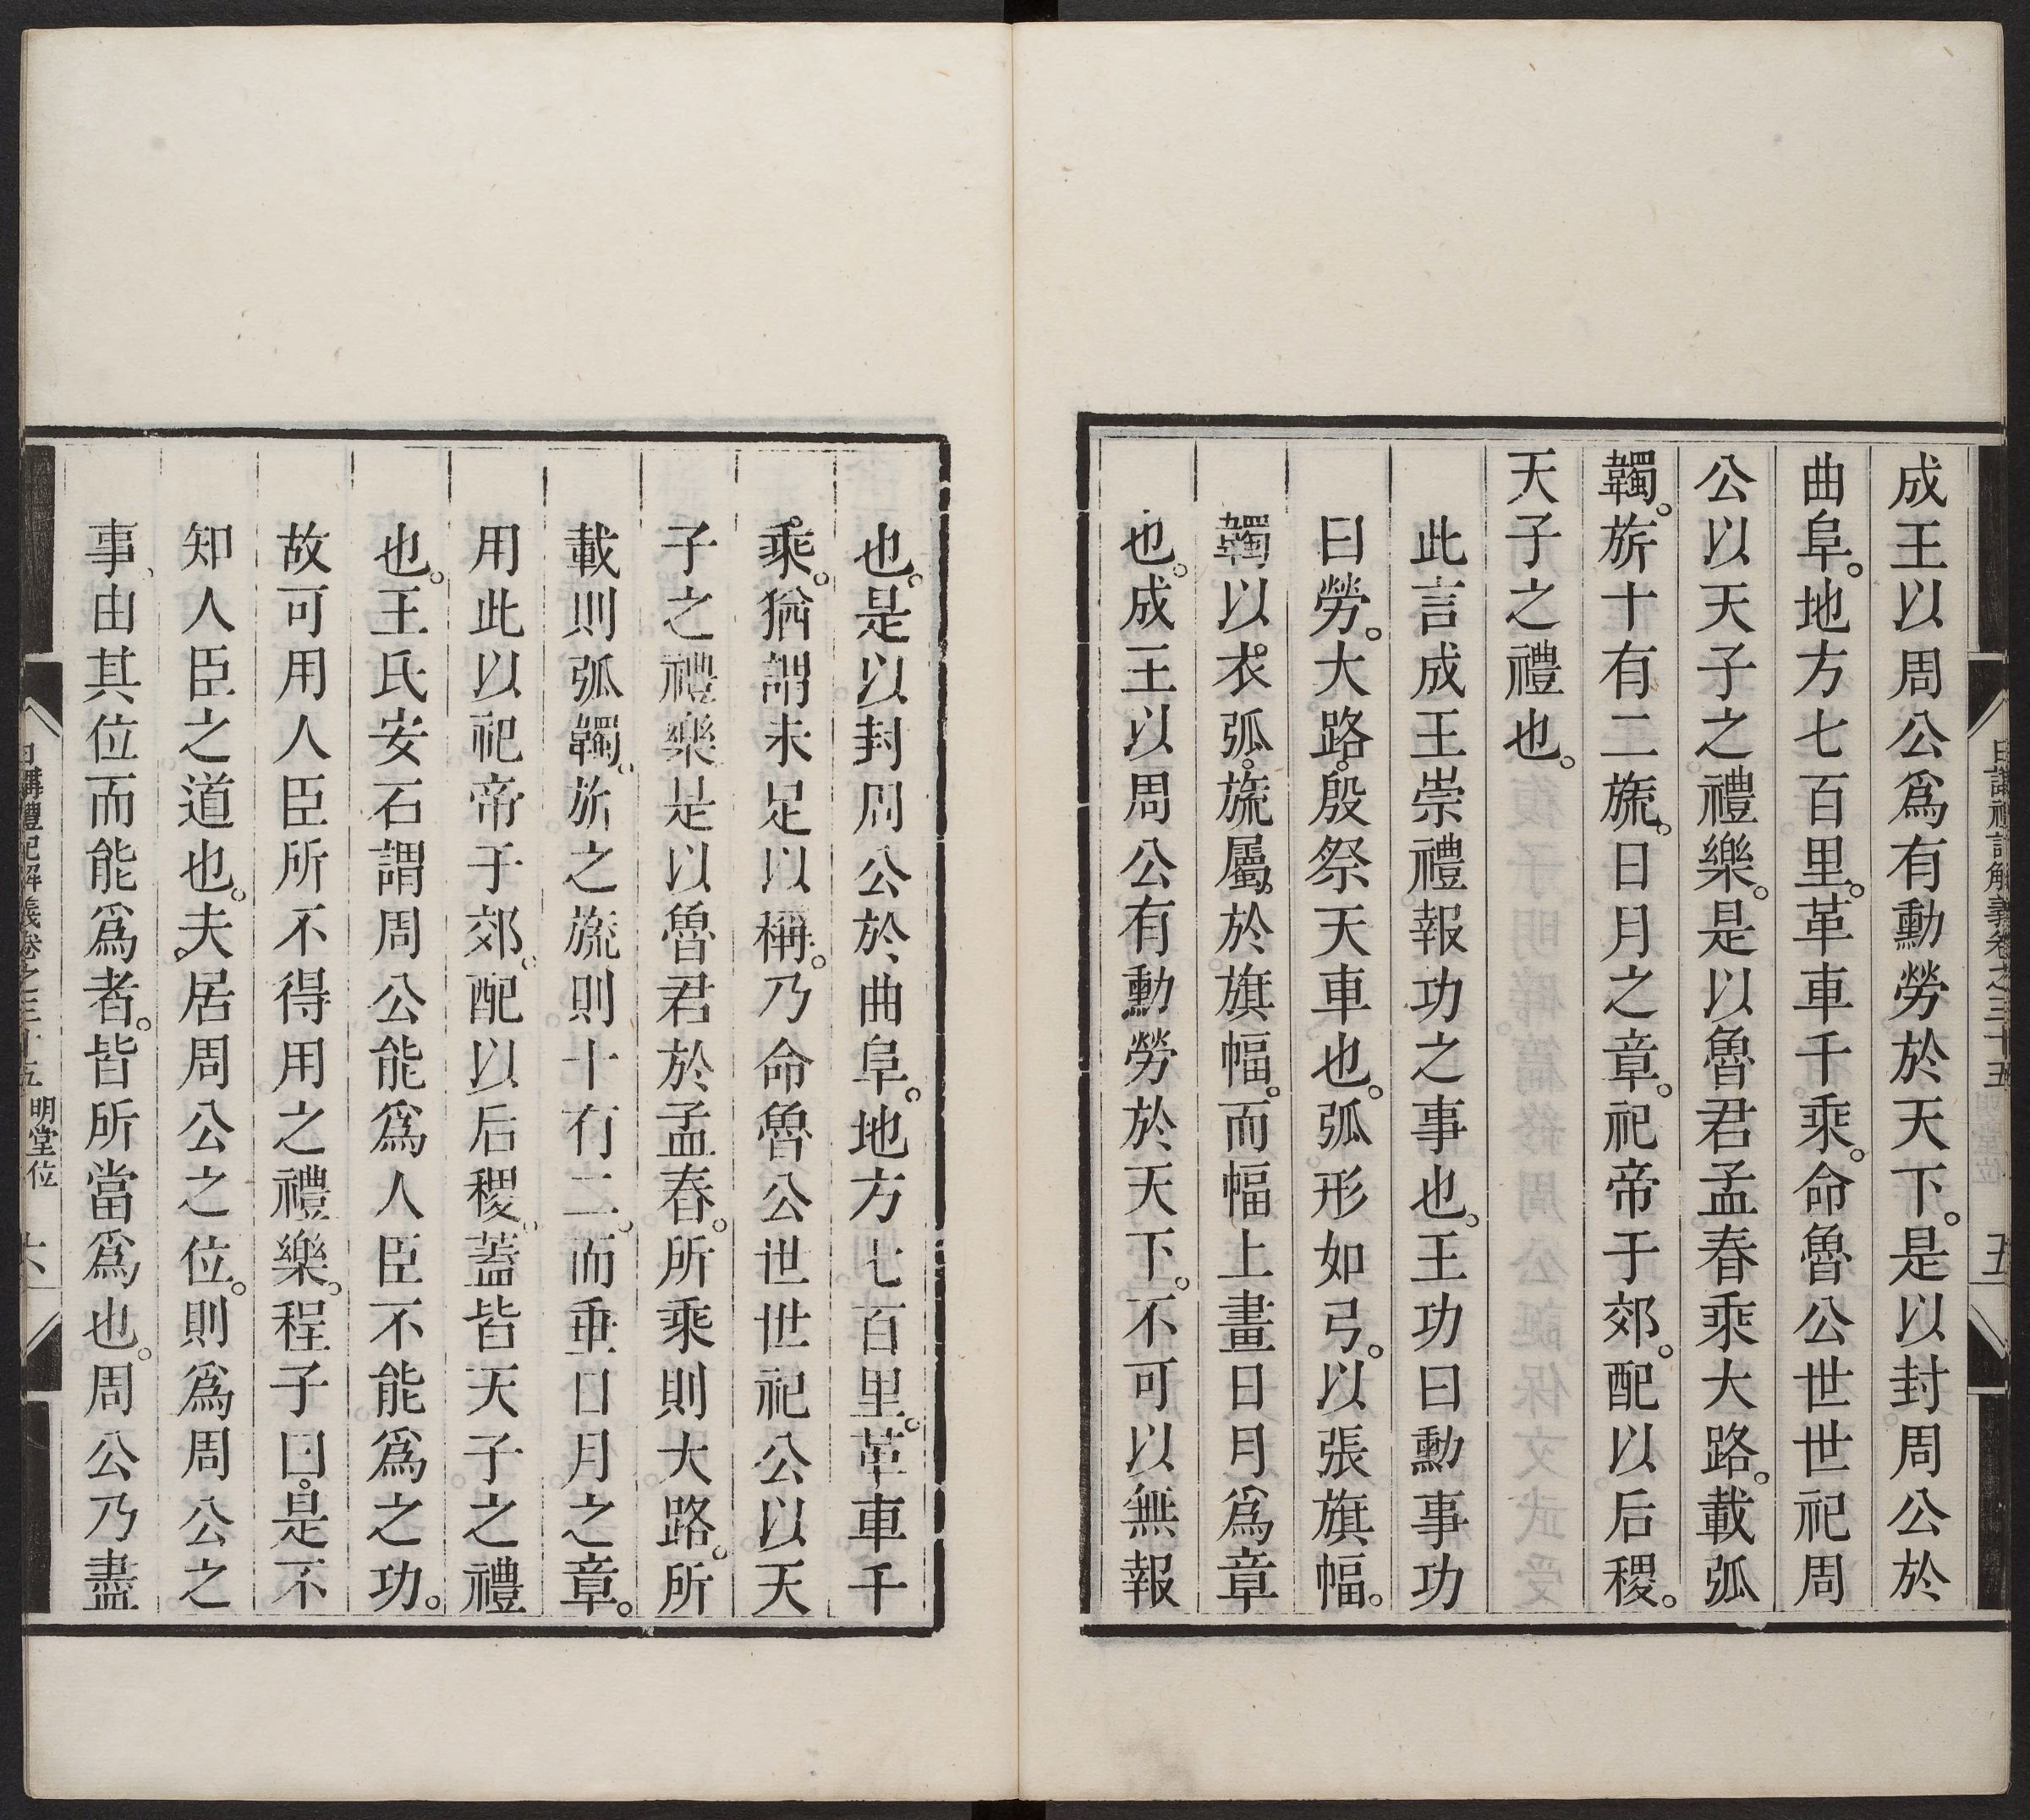 成王以周公爲有勳勞於天下。是以封周公於
曲阜。地方七百里。革車千乘。命魯公世世祀周
公以天子之禮樂。是以魯君孟春乘大路。載弧
韣。旂十有二旒。日月之章。祀帝于郊。配以后稷。
天子之禮也。
此言成王崇禮報功之事也。王功曰勳事功
曰勞。大路。殷祭天車也。弧形如弓。以張旗幅。
韣以衣弧。旒屬於旗幅。而幅上畫日月爲章
也。成王以周公有勳勞於天下。不可以無報
日講禮記解義卷之三十五 五
也。是以封周公於曲阜。地方七百里。革車千
乘。猶謂未足以稱。乃命魯公世世祀公以天
子之禮樂是以魯君於孟春。所乘則大路。所
載則弧韣。旂之旒則十有二。而垂日月之章。
用此以祀帝于郊。配以后稷。蓋皆天子之禮
也。王氏安石謂周公能爲人臣不能爲之功。
故可用人臣所不得用之禮樂。程子曰。是不
知人臣之道也。夫居周公之位。則爲周公之
事、由其位而能爲者。皆所當爲也。周公乃盡
日講禮記解義卷之三十五 明堂位 六